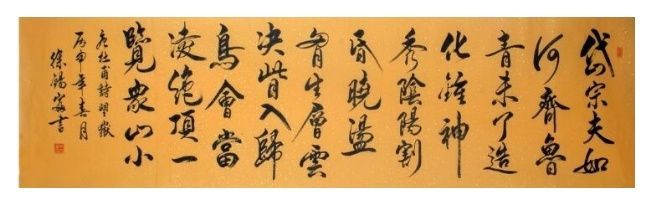 岱宗夫如
何齊魯
青未了造
化鍾神
秀陰陽割
昏曉盪
胷生層雲
決眥入歸
鳥會當
淩絶頂一
覽衆山小
杜甫詩望嶽
丙申年春月
徐錫書